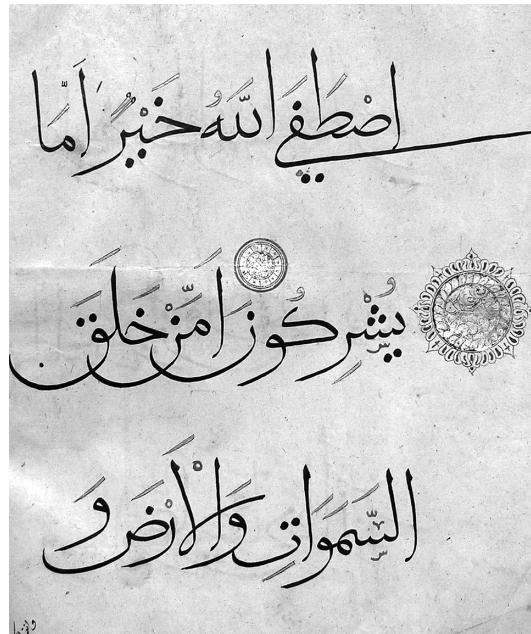 اصْطَفَى اللَّهُ خَيْرٌ أَمَّا
يُشْرِكُونَ أَمَّنْ خَلَقَ
السَّمَوَاتِ وَالْأَرْضَ وَ